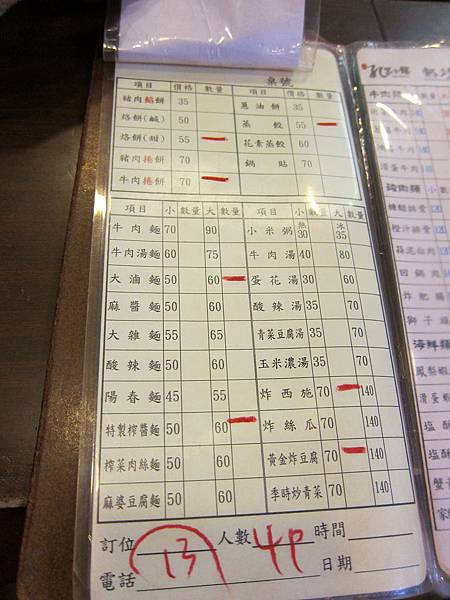 桌號
項目 價格 數量 項目 價格 數量
豬肉餡餅 35 蔥油餅 35
烙餅(鹹) 50 蒸餃 55
烙餅(甜) 55 花素蒸餃 60
豬肉捲餅 70 鍋貼 70
牛肉捲餅 70
項目 小 數量 大 數量 項目 小 數量 大 數量
牛肉麵 70 90 小米粥 熱30 冰35
牛肉湯麵 60 75 牛肉湯 40 80
大滷麵 50 60 蛋花湯 30 60
麻醬麵 50 60 酸辣湯 35 70
大雜麵 55 65 青菜豆腐湯 35 70
酸辣麵 50 60 玉米濃湯 35 70
陽春麵 45 55 炸西施 70 140
特製榨醬麵 50 60 炸絲瓜 70 140
榨菜肉絲麵 50 60 黃金炸豆腐 70 140
麻婆豆腐麵 50 60 季時炒青菜 70 140
訂位 13 人數 4P 時間
電話 日期
牛肉類
豬肉類 小
回鍋肉
炸肥腸
獅子頭
海鮮類
鳳梨蝦
滑蛋蝦
塩酥
塩酥
蟹黃
家